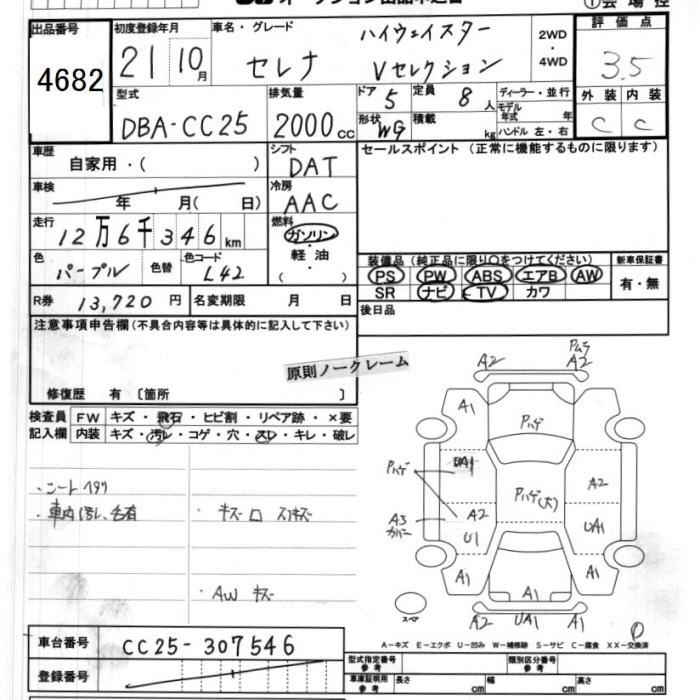 出品番号 初度登録年月 車名・グレード ハイウェイスター 2WD・4WD 評価点
4682 21 10月 セレナ Vセレクション 3.5
型式 排気量 ドア 5 定員 8人 ディーラー・並行 外装 内装
DBA-CC25 2000cc 形状 WG 積載 kg モデル年式 年 C C
ハンドル 左・右
車歴 自家用・( ) シフト DAT セールスポイント(正常に機能するものに限ります)
車検 年 月( 日) 冷房 AAC
走行 12万6千346km 燃料 ガソリン・軽油・( )
色 パープル 色替 色コード L42 装備品(純正品に限り○をつけてください) 新車保証書
PS PW ABS エアB AW 有・無
R券 13,720円 名変期限 月 日 SR ナビ TV カワ
後日品
注意事項申告欄(不具合内容等は具体的に記入して下さい)
原則ノークレーム
修復歴 有〔箇所 〕
検査員 FW キズ・飛石・ヒビ割・リペア跡・×要
記入欄 内装 キズ・汚レ・コゲ・穴・スレ・キレ・破レ
・シートヘタリ
・車内汚レ、
・キズ
・AW キズ
A2 A2
A1 Pハゲ
Pハゲ UA1 A2
Pハゲ(大)
A3 カバー A2 U1 UA1
A1 A1 A1
スペア A2 UA1 A1
A-キズ E-エクボ U-凹み W-補修跡 S-サビ C-腐食 XX-交換済
車台番号 CC25-307546
登録番号
型式指定番号 参考 類別区分番号 参考
車庫証明用 参考 長さ cm 幅 cm 高さ cm